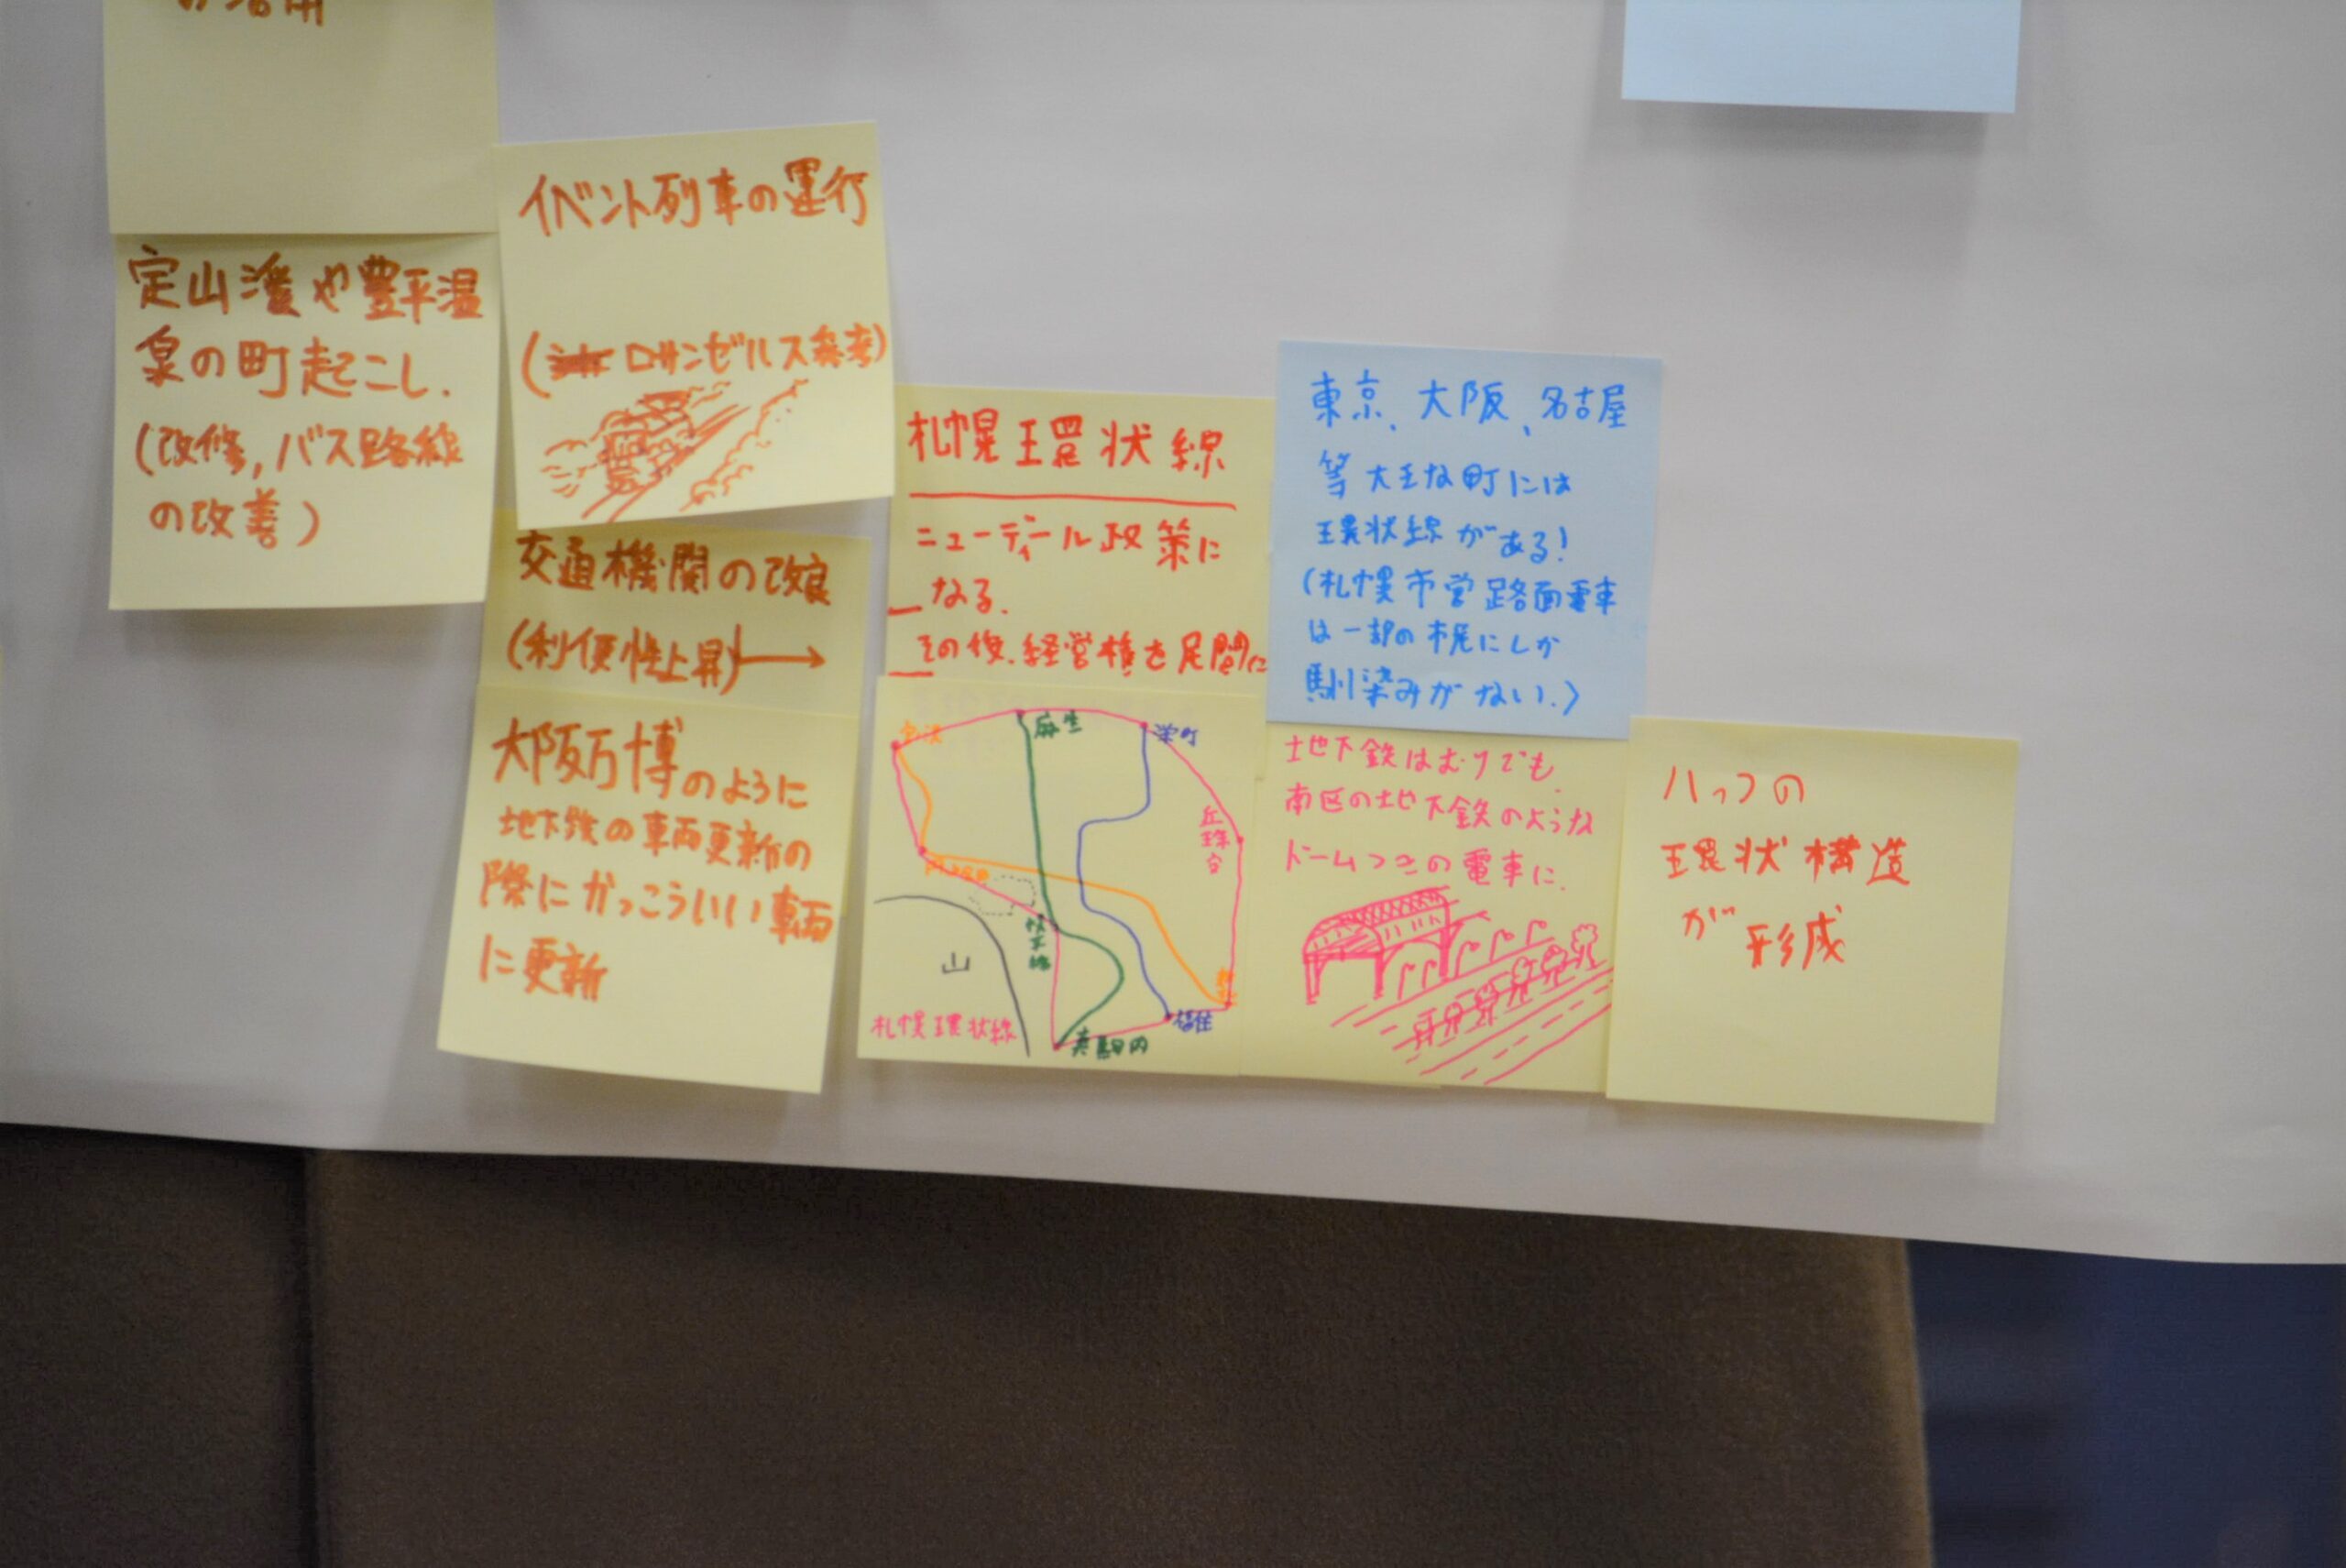 の活用
定山渓や豊平温
泉の町起こし.
(改修,バス路線
の改善)
イベント列車の運行
(ロサンゼルス参考)
交通機関の改良
(利便性上昇)→
大阪万博のように
地下鉄の車両更新の
際にかっこういい車両
に更新
札幌環状線
ニューディール政策に
なる.
その後.経営権を民間に
宮の沢
麻生
栄町
丘珠
山
札幌環状線
真駒内
福住
東京、大阪、名古屋
等大きな町には
環状線がある!
(札幌市営路面電車
は一部の梶にしか
馴染みがない.)
地下鉄はむりでも.
南区の地下鉄のような
ドームつきの電車に.
ハっつの
環状構造
が形成